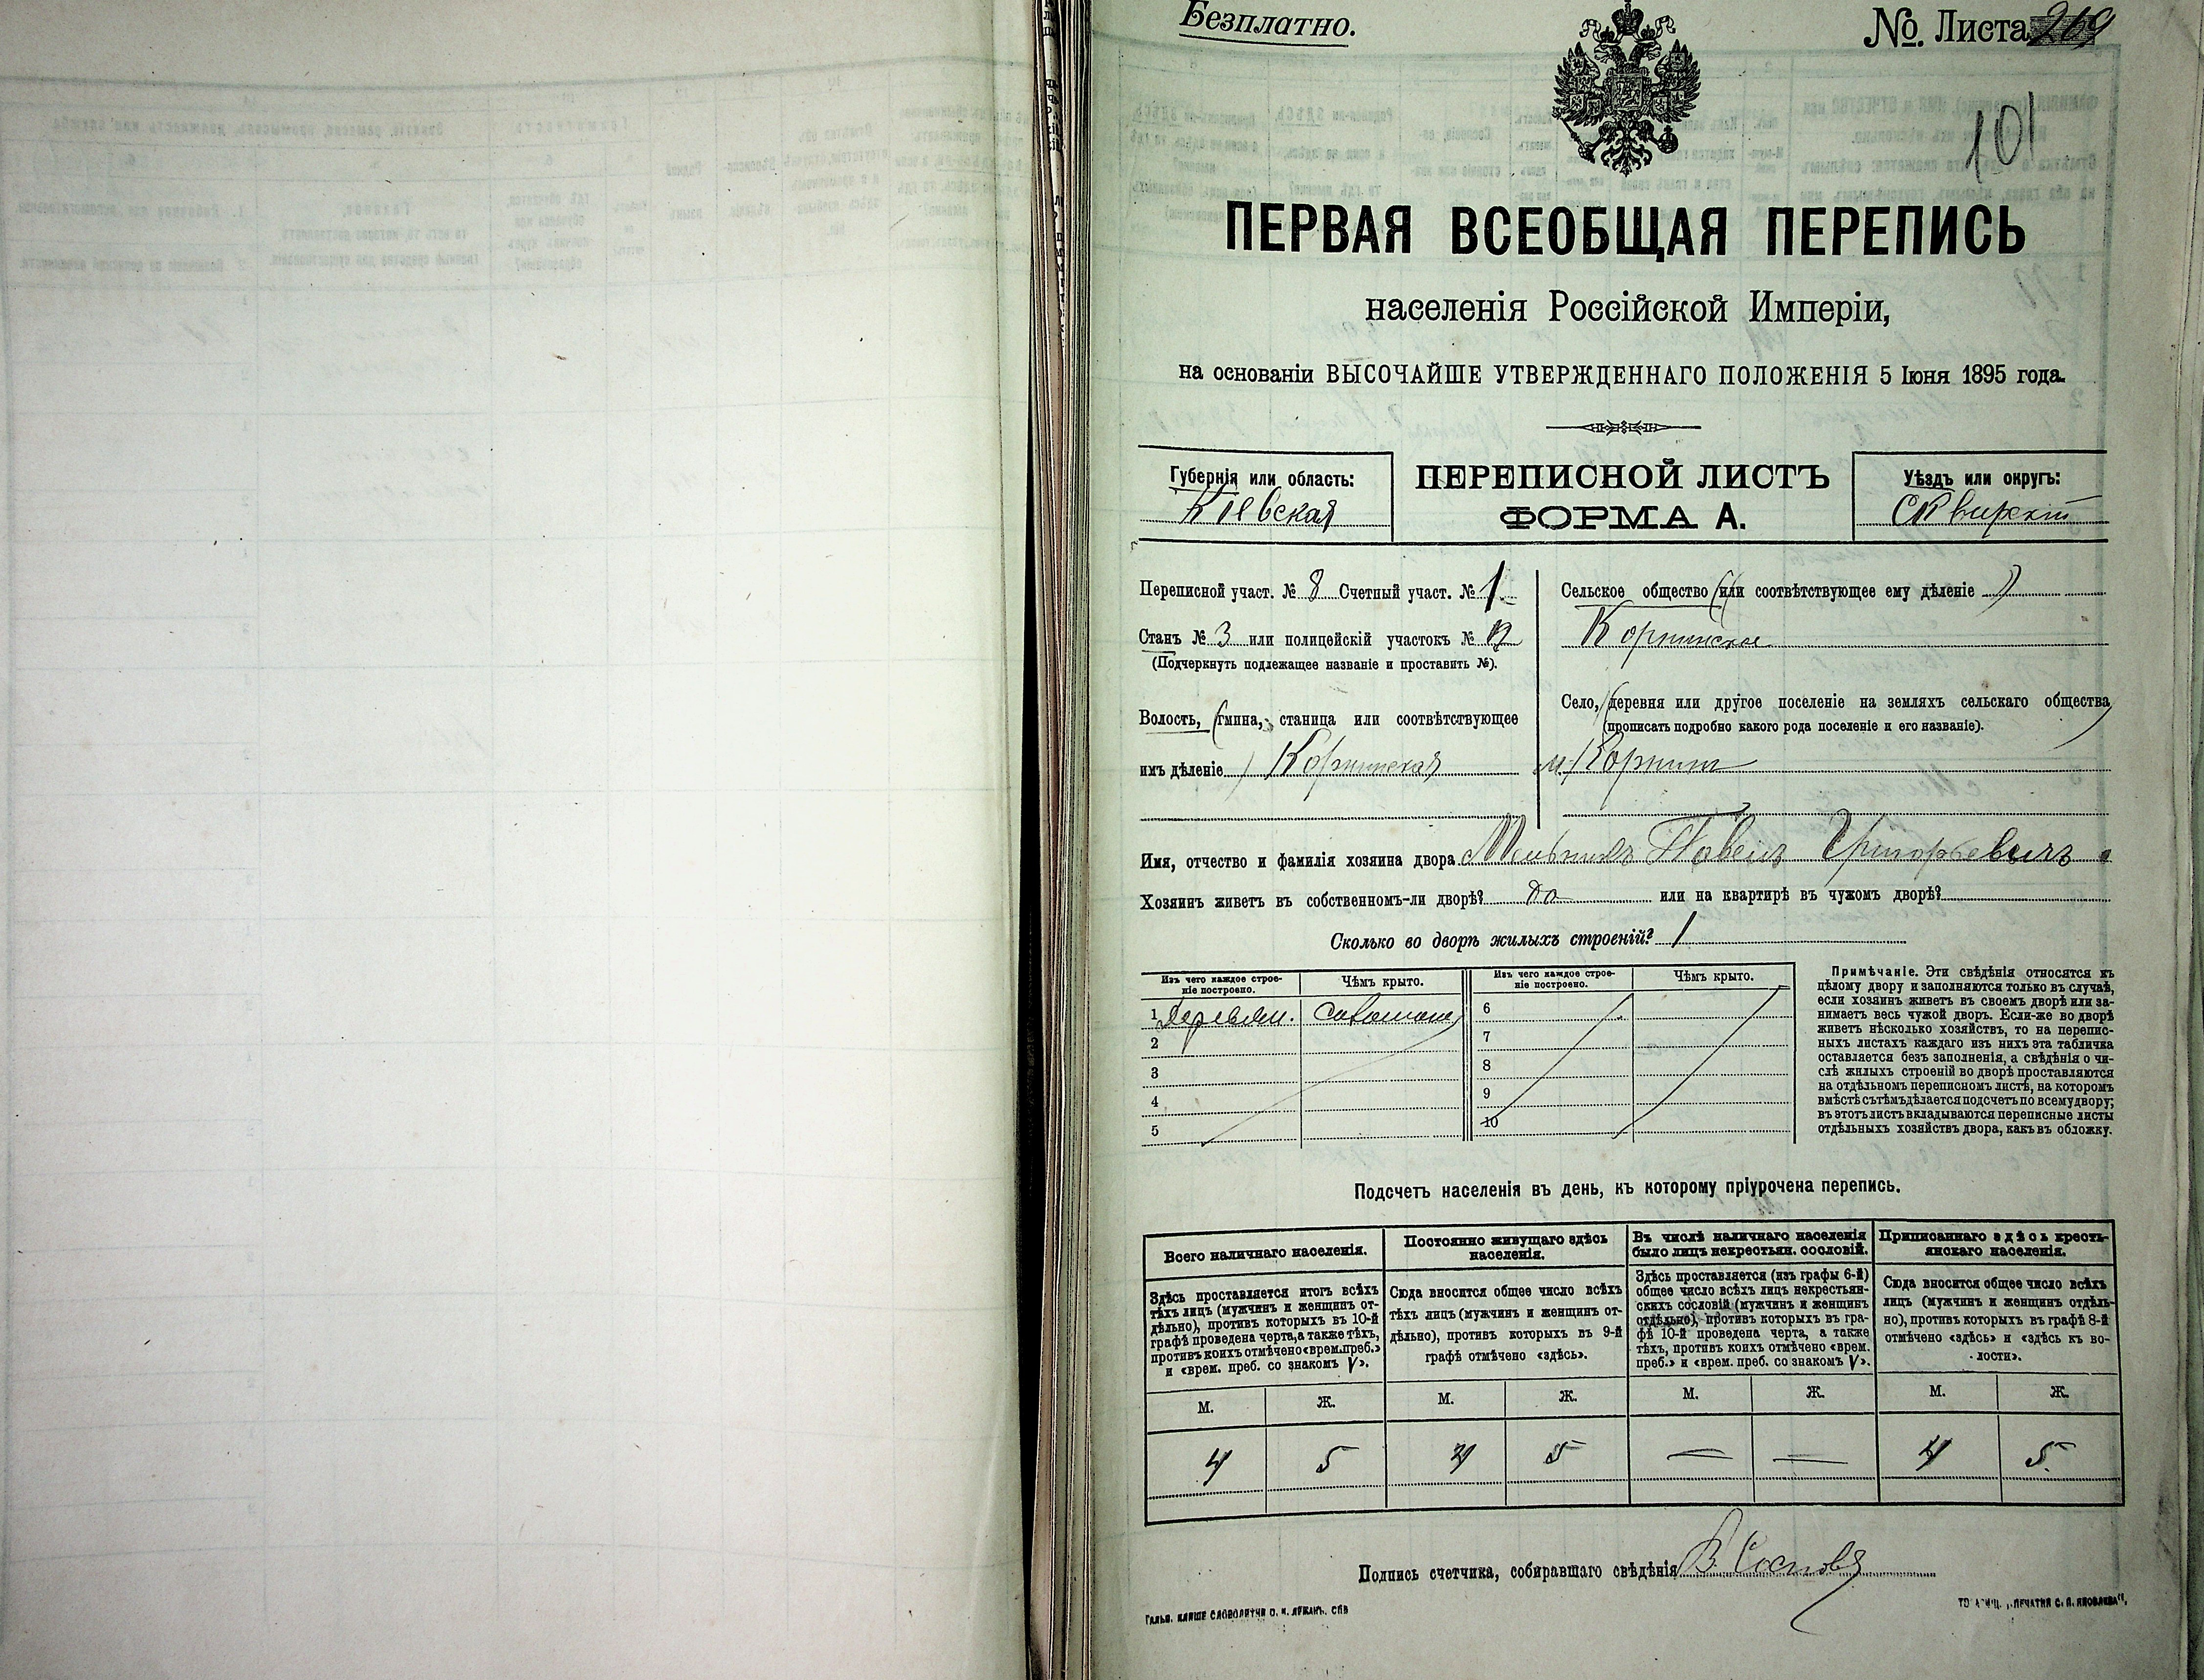 Безплатно.
№ Листа 269
101
ПЕРВАЯ ВСЕОБЩАЯ ПЕРЕПИСЬ
населенія Россійской Имперіи,
на основаніи ВЫСОЧАЙШЕ УТВЕРЖДЕННАГО ПОЛОЖЕНІЯ 5 Іюня 1895 года.
Губернія или область:
Кіевская
ПЕРЕПИСНОЙ ЛИСТЪ
ФОРМА А.
Уѣздъ или округъ:
Сквирскій
Переписной участ. № 8 Счетный участ. № 1
Станъ № 3 или полицейскій участокъ №
(Подчеркнуть подлежащее названіе и проставить №).
Волость, (гмина, станица или соотвѣтствующее
имъ дѣленіе) Корнинская
Сельское общество (или соотвѣтствующее ему дѣленіе)
Корнинское
Село, (деревня или другое поселеніе на земляхъ сельскаго общества
(прописать подробно какого рода поселеніе и его названіе).
м. Корнинъ
Имя, отчество и фамилія хозяина двора Мельникъ Павелъ Григорьевичъ
Хозяинъ живетъ въ собственномъ-ли дворѣ? да или на квартирѣ въ чужомъ дворѣ?
Сколько во дворѣ жилыхъ строеній? 1
Изъ чего каждое строе-
ніе построено.
Чѣмъ крыто.
1 Деревян. Соломою
2
3
4
5
Изъ чего каждое строе-
ніе построено.
Чѣмъ крыто.
6
7
8
9
10
Примѣчаніе. Эти свѣдѣнія относятся къ
цѣлому двору и заполняются только въ случаѣ,
если хозяинъ живетъ въ своемъ дворѣ или за-
нимаетъ весь чужой дворъ. Если-же во дворѣ
живетъ нѣсколько хозяйствъ, то на перепис-
ныхъ листахъ каждаго изъ нихъ эта табличка
оставляется безъ заполненія, а свѣдѣнія о чи-
слѣ жилыхъ строеній во дворѣ проставляются
на отдѣльномъ переписномъ листѣ, на которомъ
вмѣстѣ съ тѣмъ дѣлается подсчетъ по всему двору;
въ этотъ листъ вкладываются переписные листы
отдѣльныхъ хозяйствъ двора, какъ въ обложку.
Подсчетъ населенія въ день, къ которому пріурочена перепись.
Всего наличнаго населенія.
Здѣсь проставляется итогъ всѣхъ
тѣхъ лицъ (мужчинъ и женщинъ от-
дѣльно), противъ которыхъ въ 10-й
графѣ проведена черта, а также тѣхъ,
противъ коихъ отмѣчено «врем. преб.»
и «врем. преб. со знакомъ V».
М. Ж.
4 5
Постоянно живущаго здѣсь
населенія.
Сюда вносится общее число всѣхъ
тѣхъ лицъ (мужчинъ и женщинъ от-
дѣльно), противъ которыхъ въ 9-й
графѣ отмѣчено «здѣсь».
М. Ж.
4 5
Въ числѣ наличнаго населенія
было лицъ некрестьян. сословій.
Здѣсь проставляется (изъ графы 6-й)
общее число всѣхъ лицъ некрестьян-
скихъ сословій (мужчинъ и женщинъ
отдѣльно), противъ которыхъ въ гра-
фѣ 10-й проведена черта, а также
тѣхъ, противъ коихъ отмѣчено «врем.
преб.» и «врем. преб. со знакомъ V».
М. Ж.
— —
Приписаннаго здѣсь кресть-
янскаго населенія.
Сюда вносится общее число всѣхъ
лицъ (мужчинъ и женщинъ отдѣль-
но), противъ которыхъ въ графѣ 8-й
отмѣчено «здѣсь» и «здѣсь къ во-
лости».
М. Ж.
4 5.
Подпись счетчика, собиравшаго свѣдѣнія В.